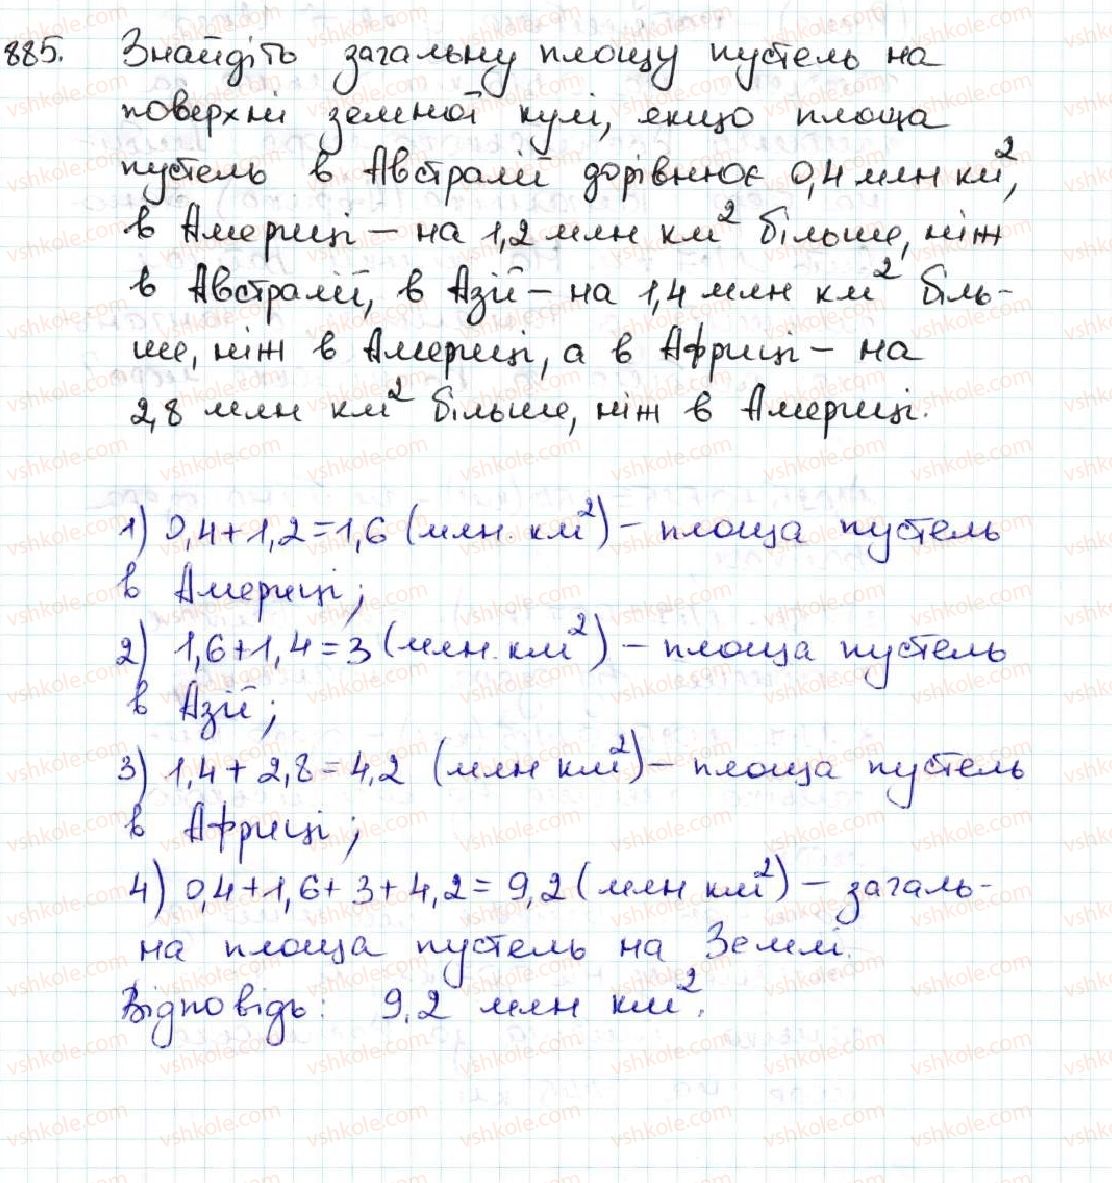 885. Знайдіть загальну площу пустель на
поверхні земної кулі, якщо площа
пустель в Австралії дорівнює 0,4 млн км²,
в Америці – на 1,2 млн км² більше, ніж
в Австралії, в Азії – на 1,4 млн км² біль-
ше, ніж в Америці, а в Африці – на
2,8 млн км² більше, ніж в Америці.
1) 0,4+1,2=1,6 (млн. км²) – площа пустель
в Америці;
2) 1,6+1,4=3 (млн. км²) – площа пустель
в Азії;
3) 1,4+2,8=4,2 (млн км²) – площа пустель
в Африці;
4) 0,4+1,6+3+4,2=9,2 (млн км²) – загаль-
на площа пустель на Землі.
Відповідь: 9,2 млн км².